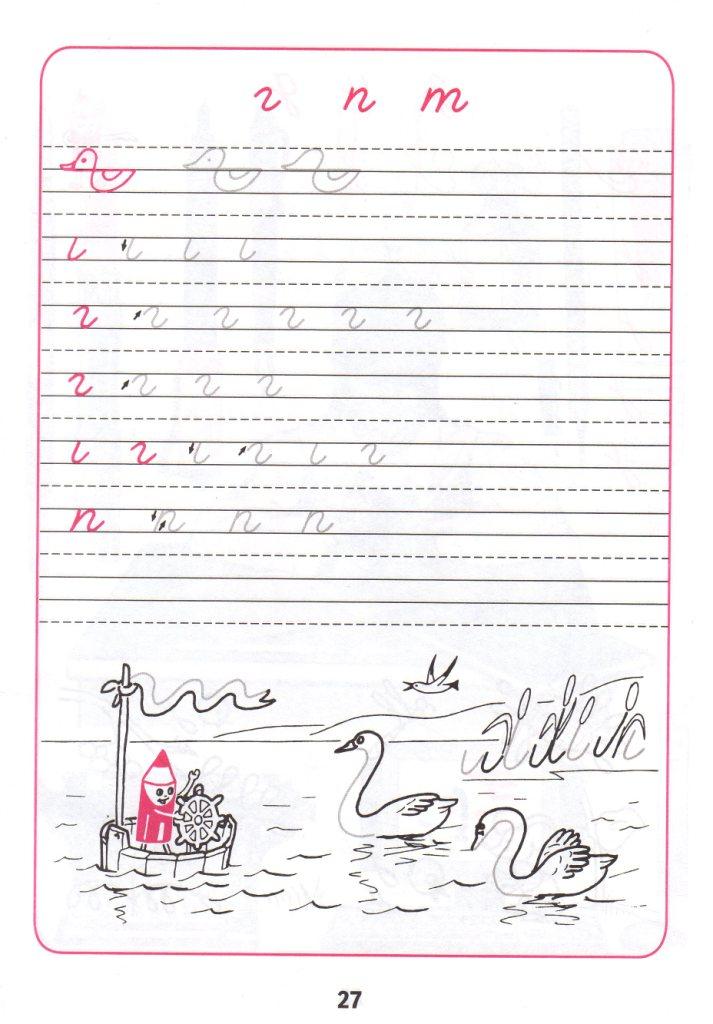 г п т
г г г г г г
г г г г
г г г
п п п п
27